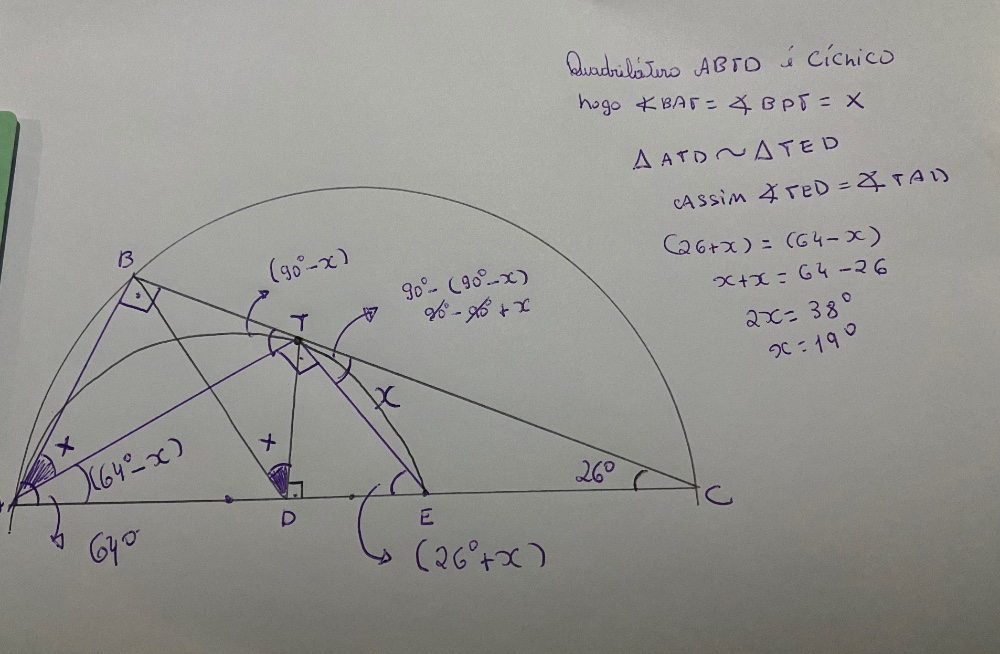 Quadrilátero ABTD é Cíclico
Logo ∡BAT = ∡BDT = x
Δ ATD ~ Δ TED
Assim ∡TED = ∡TAD
(26+x) = (64-x)
x+x = 64-26
2x = 38°
x = 19°
B
(90°-x)
90°-(90°-x)
90°-90°+x
T
x
x
(64°-x)
x
26°
C
D
E
64°
(26°+x)